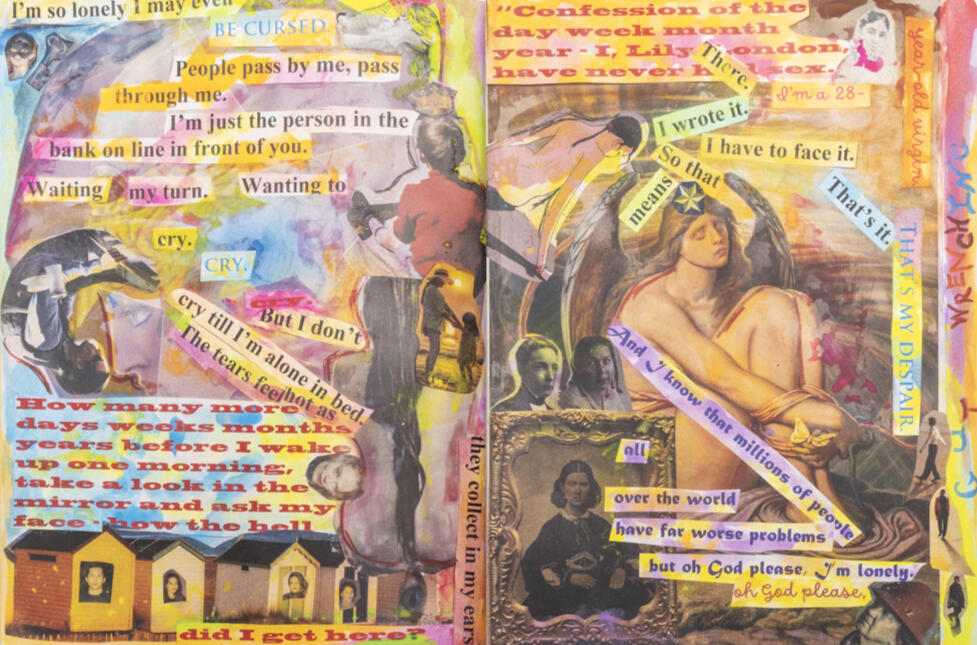 I'm so lonely I may even
BE CURSED.
People pass by me, pass
through me.
I'm just the person in the
bank on line in front of you.
Waiting my turn. Wanting to
cry.
CRY.
cry.
But I don't
cry till I'm alone in bed
The tears feel hot as
they collect in my ears
How many more
days weeks months
years before I wake
up one morning,
take a look in the
mirror and ask my
face - how the hell
did I get here?
"Confession of the
day week month
year - I, Lily London,
have never had sex.
I'm a 28-
year-old virgin.
There.
I wrote it.
I have to face it.
So that
means
That's it.
THAT'S MY DESPAIR.
And I know that millions of people
all
over the world
have far worse problems
but oh God please, I'm lonely.
oh God please,
GUT
WRENCHING